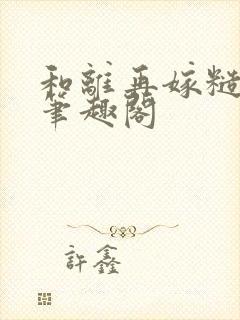 和離再嫁糙
筆趣閣
許鑫